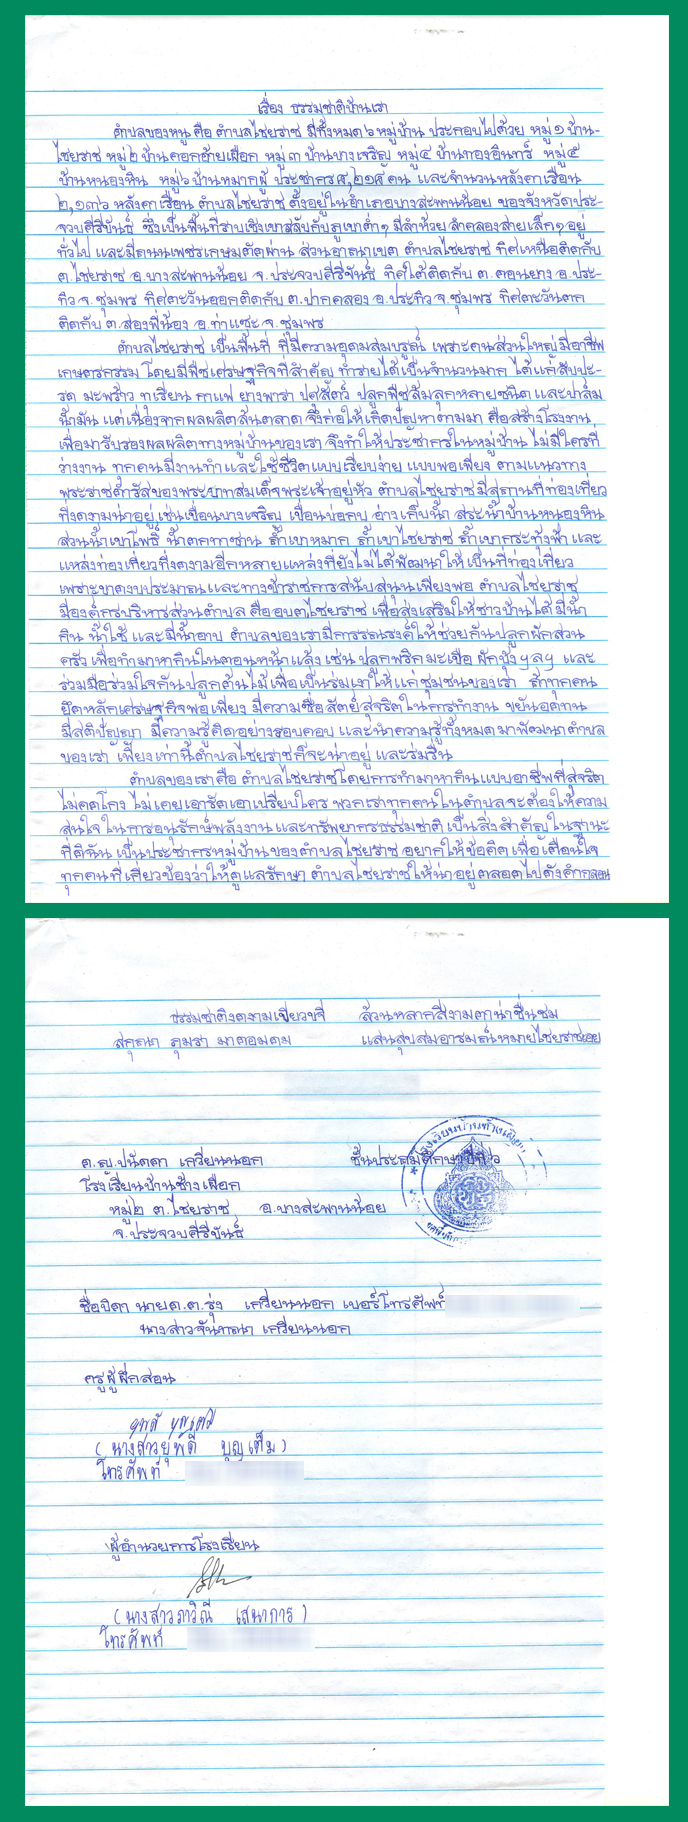 เรื่อง ธรรมชาติบ้านเรา
ตำบลของหนู คือ ตำบลไชยราช มีทั้งหมด ๖ หมู่บ้าน ประกอบไปด้วย หมู่ ๑ บ้าน-
ไชยราช หมู่ ๒ บ้านดอกอ้ายเผือก หมู่ ๓ บ้านบางเจริญ หมู่ ๔ บ้านทองอินทร์ หมู่ ๕
บ้านหนองหิน หมู่ ๖ บ้านหมากผู้ ประชากร ๕,๒๑๕ คน และจำนวนหลังคาเรือน
๒,๑๓๖ หลังคาเรือน ตำบลไชยราช ตั้งอยู่ในอำเภอบางสะพานน้อย ของจังหวัดประ-
จวบคีรีขันธ์ ซึ่งเป็นพื้นที่ราบเชิงเขาสลับกับภูเขาต่ำๆ มีลำห้วย ลำคลองสายเล็กๆ อยู่
ทั่วไป และมีถนนเพชรเกษมตัดผ่าน ส่วนอาณาเขต ตำบลไชยราช ทิศเหนือติดกับ
ต.ไชยราช อ.บางสะพานน้อย จ.ประจวบคีรีขันธ์ ทิศใต้ติดกับ ต.ดอนยาง อ.ปะ-
ทิว จ.ชุมพร ทิศตะวันออกติดกับ ต.ปากคลอง อ.ปะทิว จ.ชุมพร ทิศตะวันตก
ติดกับ ต.สองพี่น้อง อ.ท่าแซะ จ.ชุมพร
ตำบลไชยราช เป็นพื้นที่ ที่มีความอุดมสมบรูณ์ เพราะคนส่วนใหญ่มีอาชีพ
เกษตรกรรม โดยมีพืชเศรษฐกิจที่สำคัญ ทำรายได้เป็นจำนวนมาก ได้แก่ สับปะ-
รด มะพร้าว ทุเรียน กาแฟ ยางพารา ปศุสัตว์ ปลูกพืชล้มลุกหลายชนิด และปาล์ม
น้ำมัน แต่เนื่องจากผลผลิตล้นตลาด จึงก่อให้เกิดปัญหาตามมา คือสร้างโรงงาน
เพื่อมารับรองผลผลิตทางหมู่บ้านของเรา จึงทำให้ประชากรในหมู่บ้าน ไม่มีใครที่
ว่างงาน ทุกคนมีงานทำและใช้ชีวิตแบบเรียบง่าย แบบพอเพียง ตามแนวทาง
พระราชดำรัสของพระบาทสมเด็จพระเจ้าอยู่หัว ตำบลไชยราชมีสถานที่ท่องเที่ยว
ที่งดงามน่าอยู่ เช่นเขื่อนบางเจริญ เขื่อนบ่อกบ อ่างเก็บน้ำ สระน้ำบ้านหนองหิน
สวนน้ำเขาโพธิ์ น้ำตกทาซ่าน ถ้ำเขาหมาก ถ้ำเขาไชยราช ถ้ำเขากระทุ้งฟ้า และ
แหล่งท่องเที่ยวที่งดงามอีกหลายแหล่งที่ยังไม่ได้พัฒนาให้เป็นที่ท่องเที่ยว
เพราะขาดงบประมาณและทางข้าราชการสนับสนุนเพียงพอ ตำบลไชยราช
มีองค์กรบริหารส่วนตำบล คือ อบต.ไชยราช เพื่อส่งเสริมให้ชาวบ้านได้มีน้ำ
กิน น้ำใช้ และมีน้ำอาบ ตำบลของเรามีการรณรงค์ให้ช่วยกันปลูกผักสวน
ครัว เพื่อทำมาหากินในตอนหน้าแล้ง เช่น ปลูกพริก มะเขือ ผักบุ้ง ฯลฯ และ
ร่วมมือร่วมใจกันปลูกต้นไม้ เพื่อเป็นร่มเงาให้แก่ชุมชนของเรา ถ้าทุกคน
ยึดหลักเศรษฐกิจพอเพียง มีความซื่อสัตย์ สุจริตในการทำงาน ขยันอดทน
มีสติปัญญา มีความรู้คิดอย่างรอบคอบ และนำความรู้ทั้งหมด มาพัฒนาตำบล
ของเรา เพียงเท่านี้ตำบลไชยราชก็จะน่าอยู่ และร่มรื่น
ตำบลของเราคือ ตำบลไชยราชโดยการทำมาหากินแบบอาชีพที่สุจริต
ไม่คดโกง ไม่เคยเอารัดเอาเปรียบใคร พวกเราทุกคนในตำบลจะต้องให้ความ
สนใจในการอนุรักษ์พลังงาน และทรัพยากรธรรมชาติ เป็นสิ่งสำคัญ ในฐานะ
ที่ดิฉัน เป็นประชากรหมู่บ้านของตำบลไชยราช อยากให้ข้อคิดเพื่อเตือนใจ
ทุกคนที่เกี่ยวข้องว่าให้ดูแลรักษา ตำบลไชยราชให้น่าอยู่ตลอดไปดังคำกลอน
ธรรมชาติงดงามเขียวขจี ล้วนหลากสีงามตาน่าชื่นชม
สกุณา ภุมรา มาดอมดม แสนสุขสมอารมณ์หมายไชยราชเอย
ด.ญ.ปนัดดา เกวียนนอก ชั้นประถมศึกษาปีที่ ๖
โรงเรียนบ้านช้างเผือก
หมู่ ๒ ต.ไชยราช อ.บางสะพานน้อย
จ.ประจวบคีรีขันธ์
ชื่อบิดา นายด.ต.รุ่ง เกวียนนอก เบอร์โทรศัพท์
นางสาวจันทณา เกวียนนอก
ครูผู้ฝึกสอน
(นางสาวยุพดี บุญเต็ม)
โทรศัพท์
ผู้อำนวยการโรงเรียน
(นางสาวภาวิณี เสนาการ)
โทรศัพท์